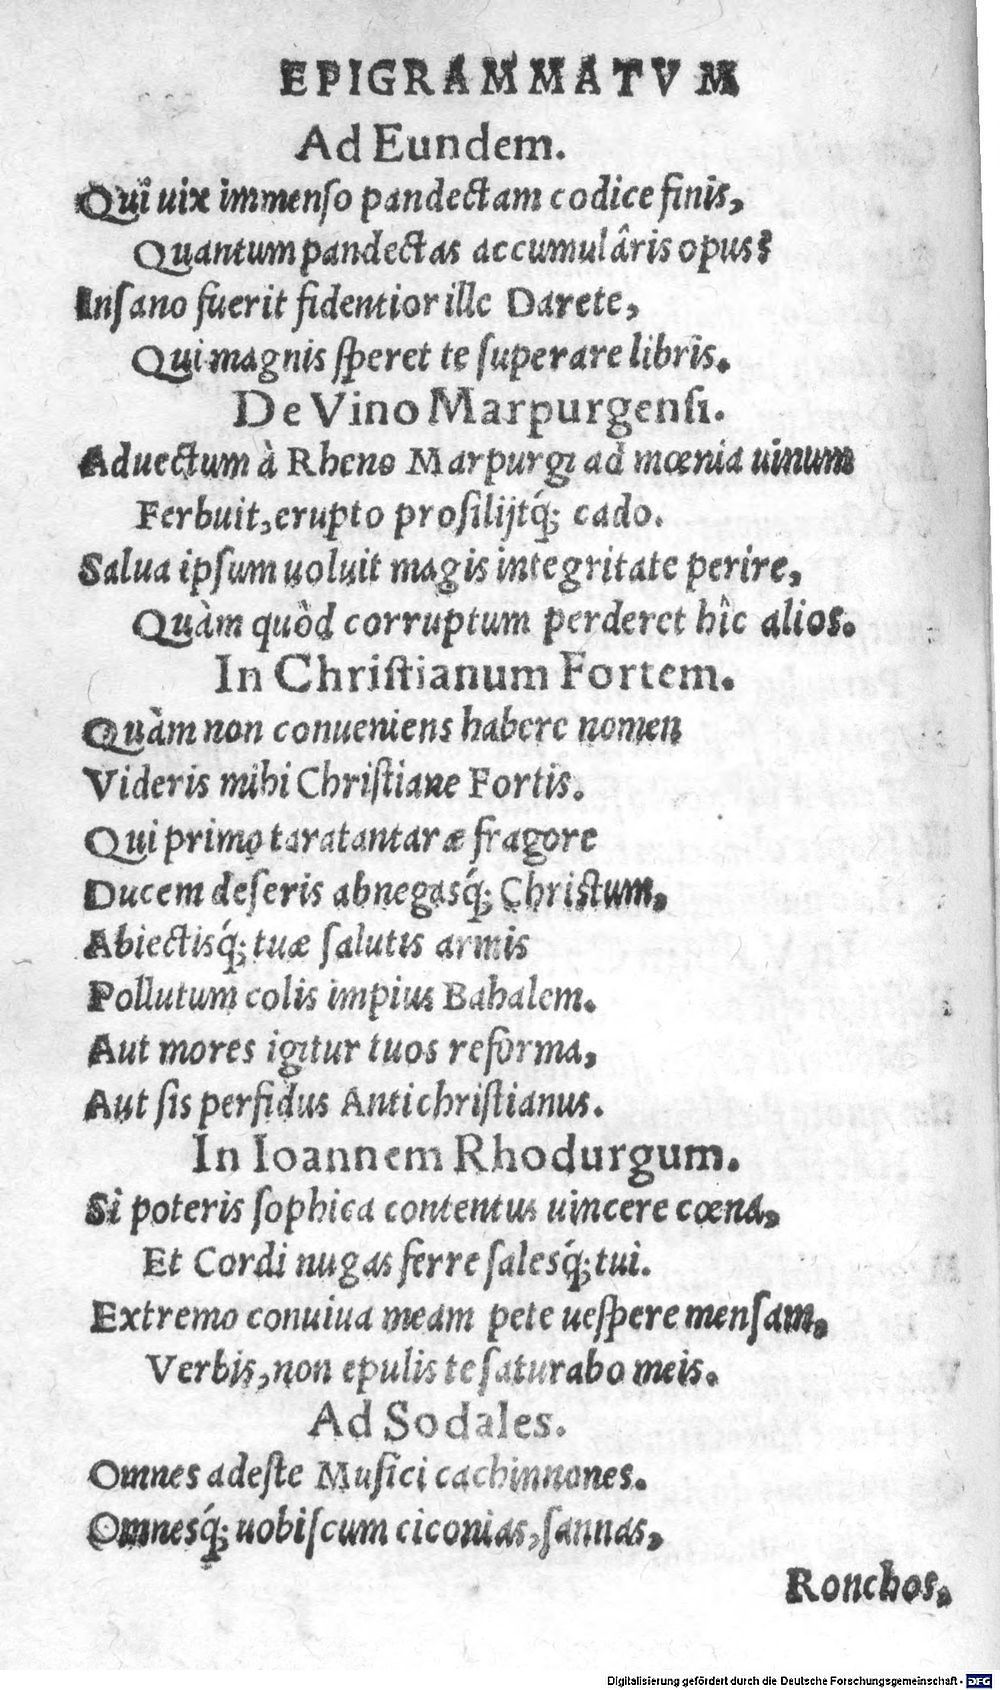 EPIGRAMMATVM
Ad Eundem.
Qui uix immenſo pandectam codice finis,
Quantum pandectas accumulâris opus?
Inſano fuerit fidentior ille Darete,
Qui magnis ſperet te ſuperare libris.
De Vino Marpurgenſi.
Aduectum à Rheno Marpurgi ad mœnia uinum
Ferbuit, erupto proſilijtq́; cado.
Salua ipſum uoluit magis integritate perire,
Quàm quòd corruptum perderet hîc alios.
In Chriſtianum Fortem.
Quàm non conueniens habere nomen
Videris mihi Chriſtiane Fortis.
Qui primo taratantaræ fragore
Ducem deſeris abnegasq́; Chriſtum,
Abiectisq́; tuæ ſalutis armis
Pollutum colis impius Bahalem.
Aut mores igitur tuos reforma,
Aut ſis perfidus Antichriſtianus.
In Ioannem Rhodurgum.
Si poteris ſophica contentus uincere cœna,
Et Cordi nugas ferre ſalesq́; tui.
Extremo conuiua meam pete ueſpere menſam,
Verbis, non epulis te ſaturabo meis.
Ad Sodales.
Omnes adeſte Muſici cachinnones.
Omnesq́; uobiſcum ciconias, ſannas,
Ronchos.
Digitalisierung gefördert durch die Deutsche Forschungsgemeinschaft - DFG